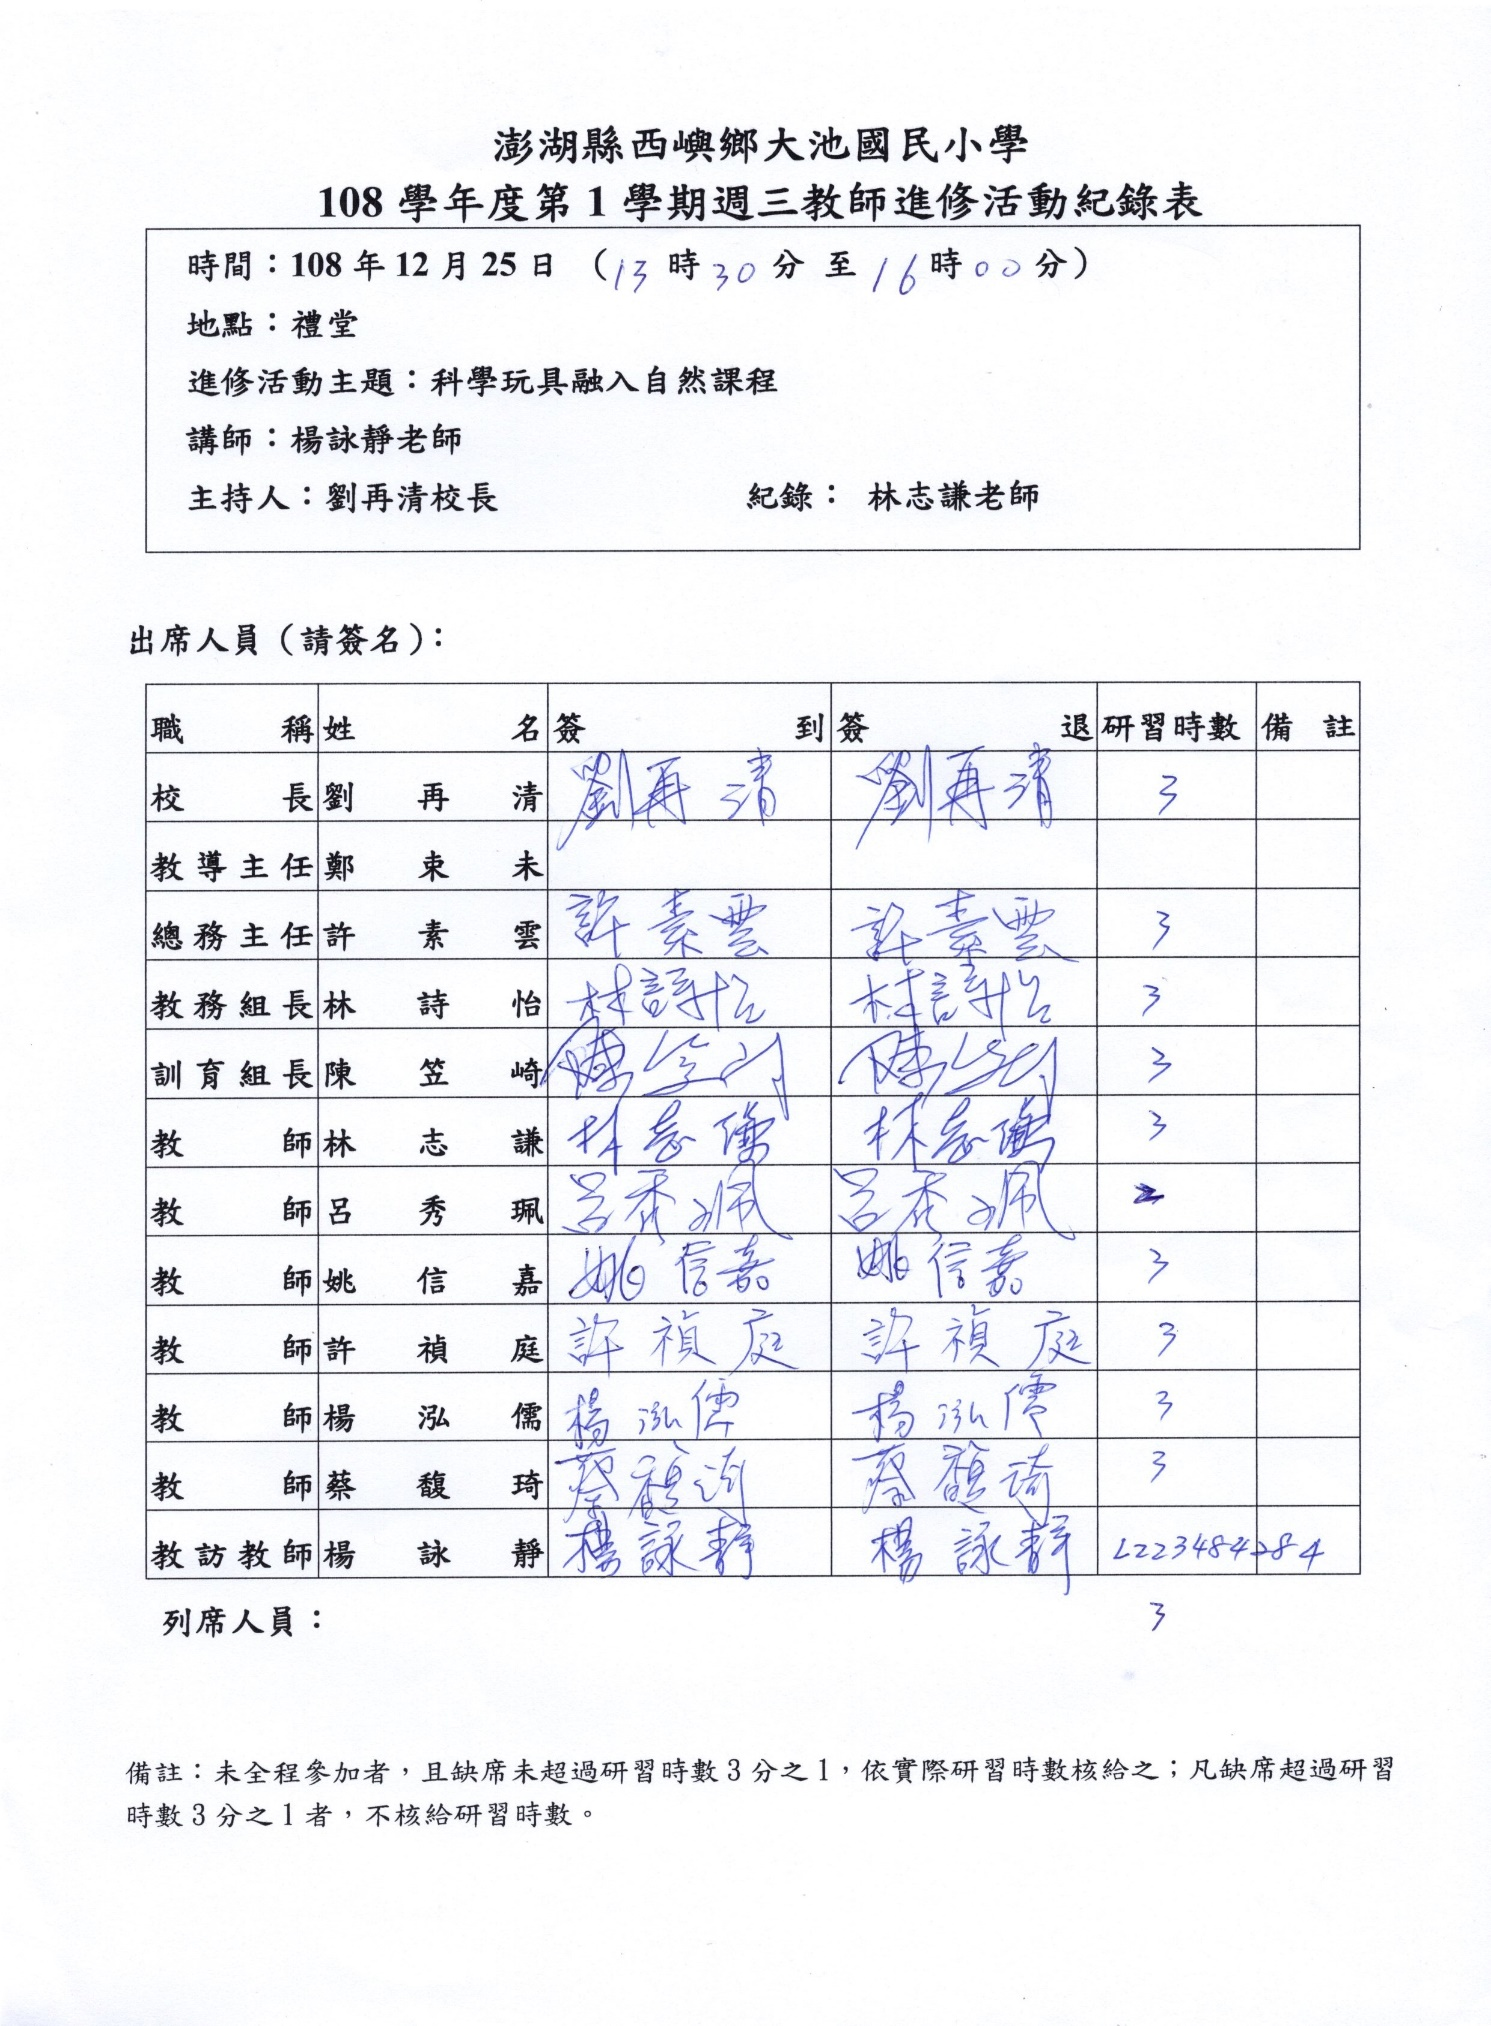 澎湖縣西嶼鄉大池國民小學
108 學年度第 1 學期週三教師進修活動紀錄表
時間：108 年 12 月 25 日 （13 時 30 分 至 16 時 00 分）
地點：禮堂
進修活動主題：科學玩具融入自然課程
講師：楊詠靜老師
主持人：劉再清校長 紀錄： 林志謙老師
出席人員（請簽名）：
職稱 姓名 簽到 簽退 研習時數 備註
校長 劉再清 劉再清 劉再清 3
教導主任 鄭束未
總務主任 許素雲 許素雲 許素雲 3
教務組長 林詩怡 林詩怡 林詩怡 3
訓育組長 陳笠崎 陳笠崎 陳笠崎 3
教師 林志謙 林志謙 林志謙 3
教師 呂秀珮 呂秀珮 呂秀珮 2
教師 姚信嘉 姚信嘉 姚信嘉 3
教師 許禎庭 許禎庭 許禎庭 3
教師 楊泓儒 楊泓儒 楊泓儒 3
教師 蔡馥琦 蔡馥琦 蔡馥琦 3
教訪教師 楊詠靜 楊詠靜 楊詠靜 L223484284
列席人員： 3
備註：未全程參加者，且缺席未超過研習時數 3 分之 1，依實際研習時數核給之；凡缺席超過研習
時數 3 分之 1 者，不核給研習時數。